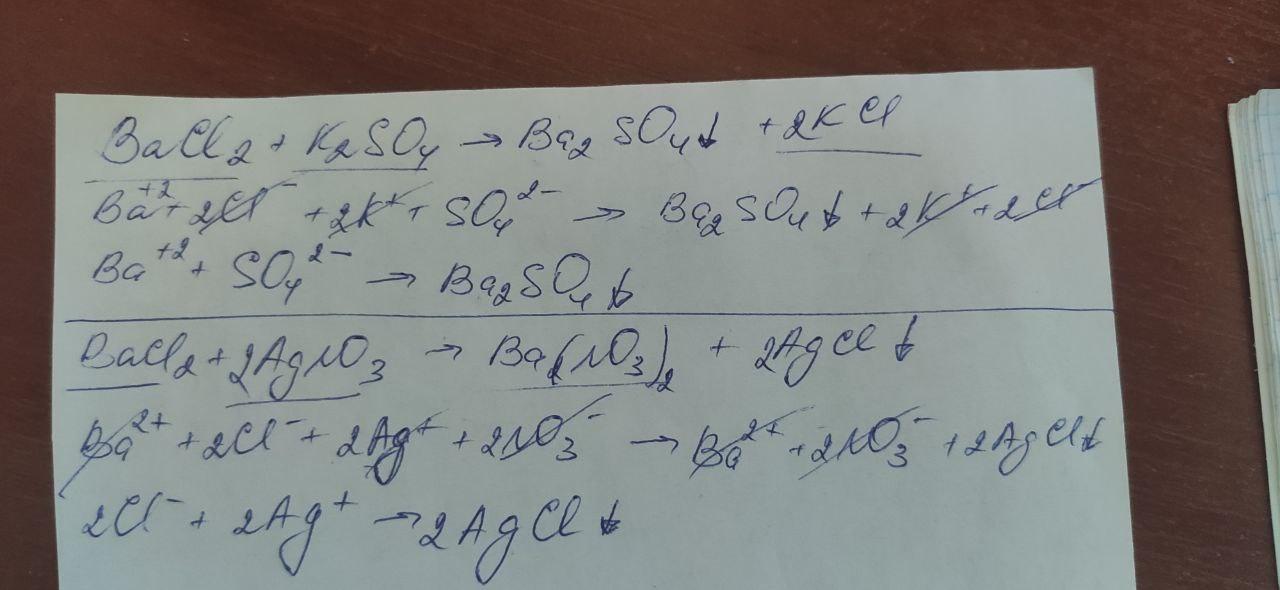 BaCl₂ + K₂SO₄ → Ba₂SO₄↓ + 2KCl
Ba⁺² + 2Cl⁻ + 2K⁺ + SO₄²⁻ → Ba₂SO₄↓ + 2K⁺ + 2Cl⁻
Ba⁺² + SO₄²⁻ → Ba₂SO₄↓
BaCl₂ + 2AgNO₃ → Ba(NO₃)₂ + 2AgCl↓
Ba²⁺ + 2Cl⁻ + 2Ag⁺ + 2NO₃⁻ → Ba²⁺ + 2NO₃⁻ + 2AgCl↓
2Cl⁻ + 2Ag⁺ → 2AgCl↓